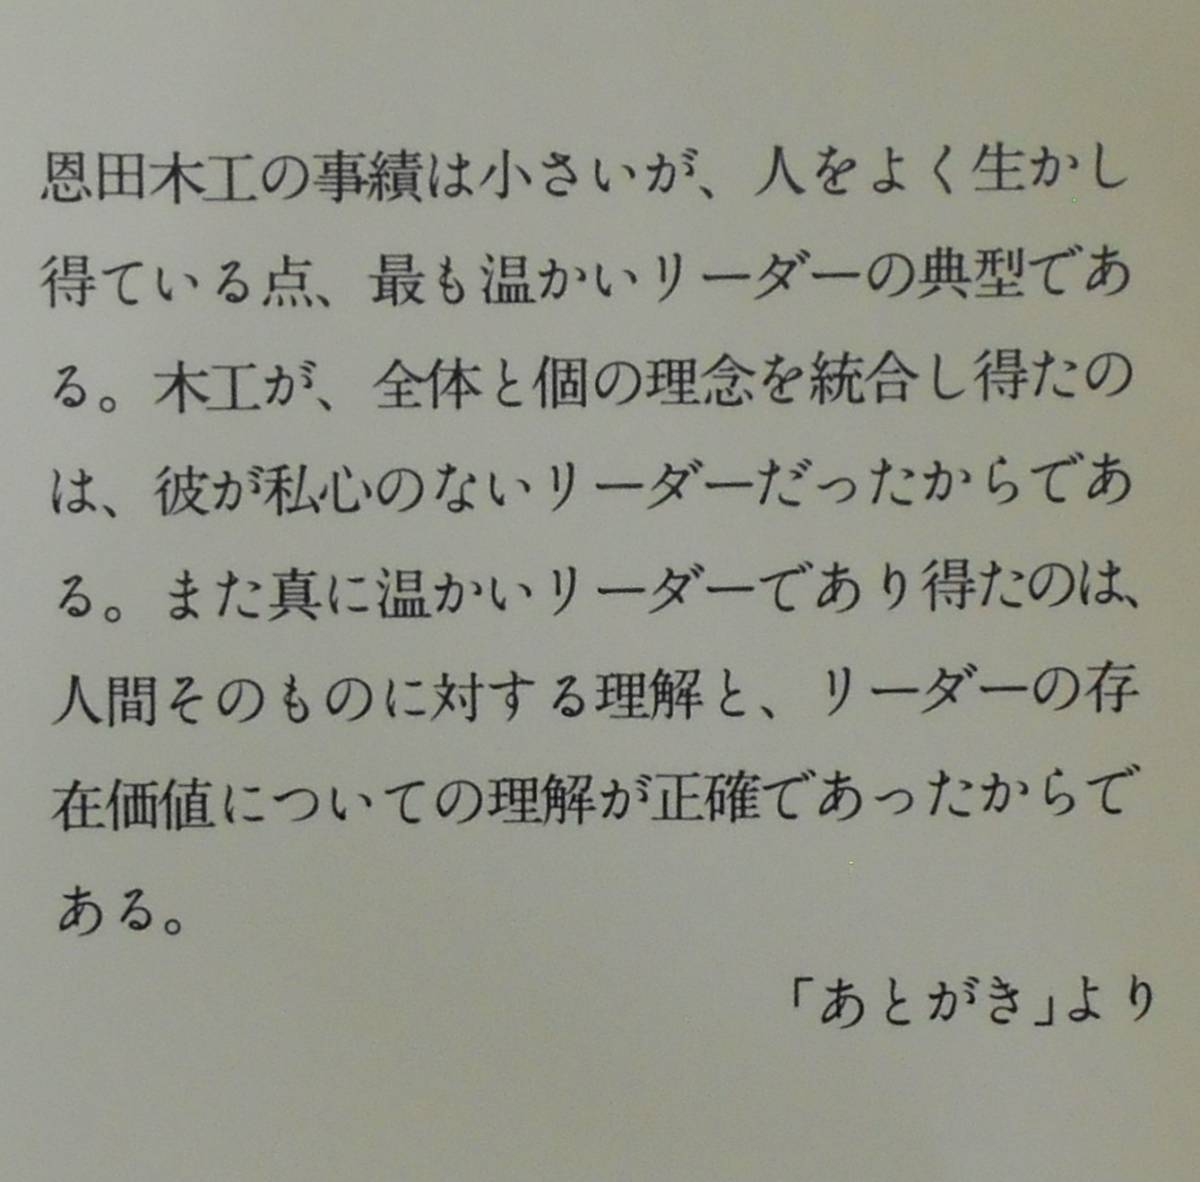 恩田木工の事績は小さいが、人をよく生かし
得ている点、最も温かいリーダーの典型であ
る。木工が、全体と個の理念を統合し得たの
は、彼が私心のないリーダーだったからであ
る。また真に温かいリーダーであり得たのは、
人間そのものに対する理解と、リーダーの存
在価値についての理解が正確であったからで
ある。
「あとがき」より